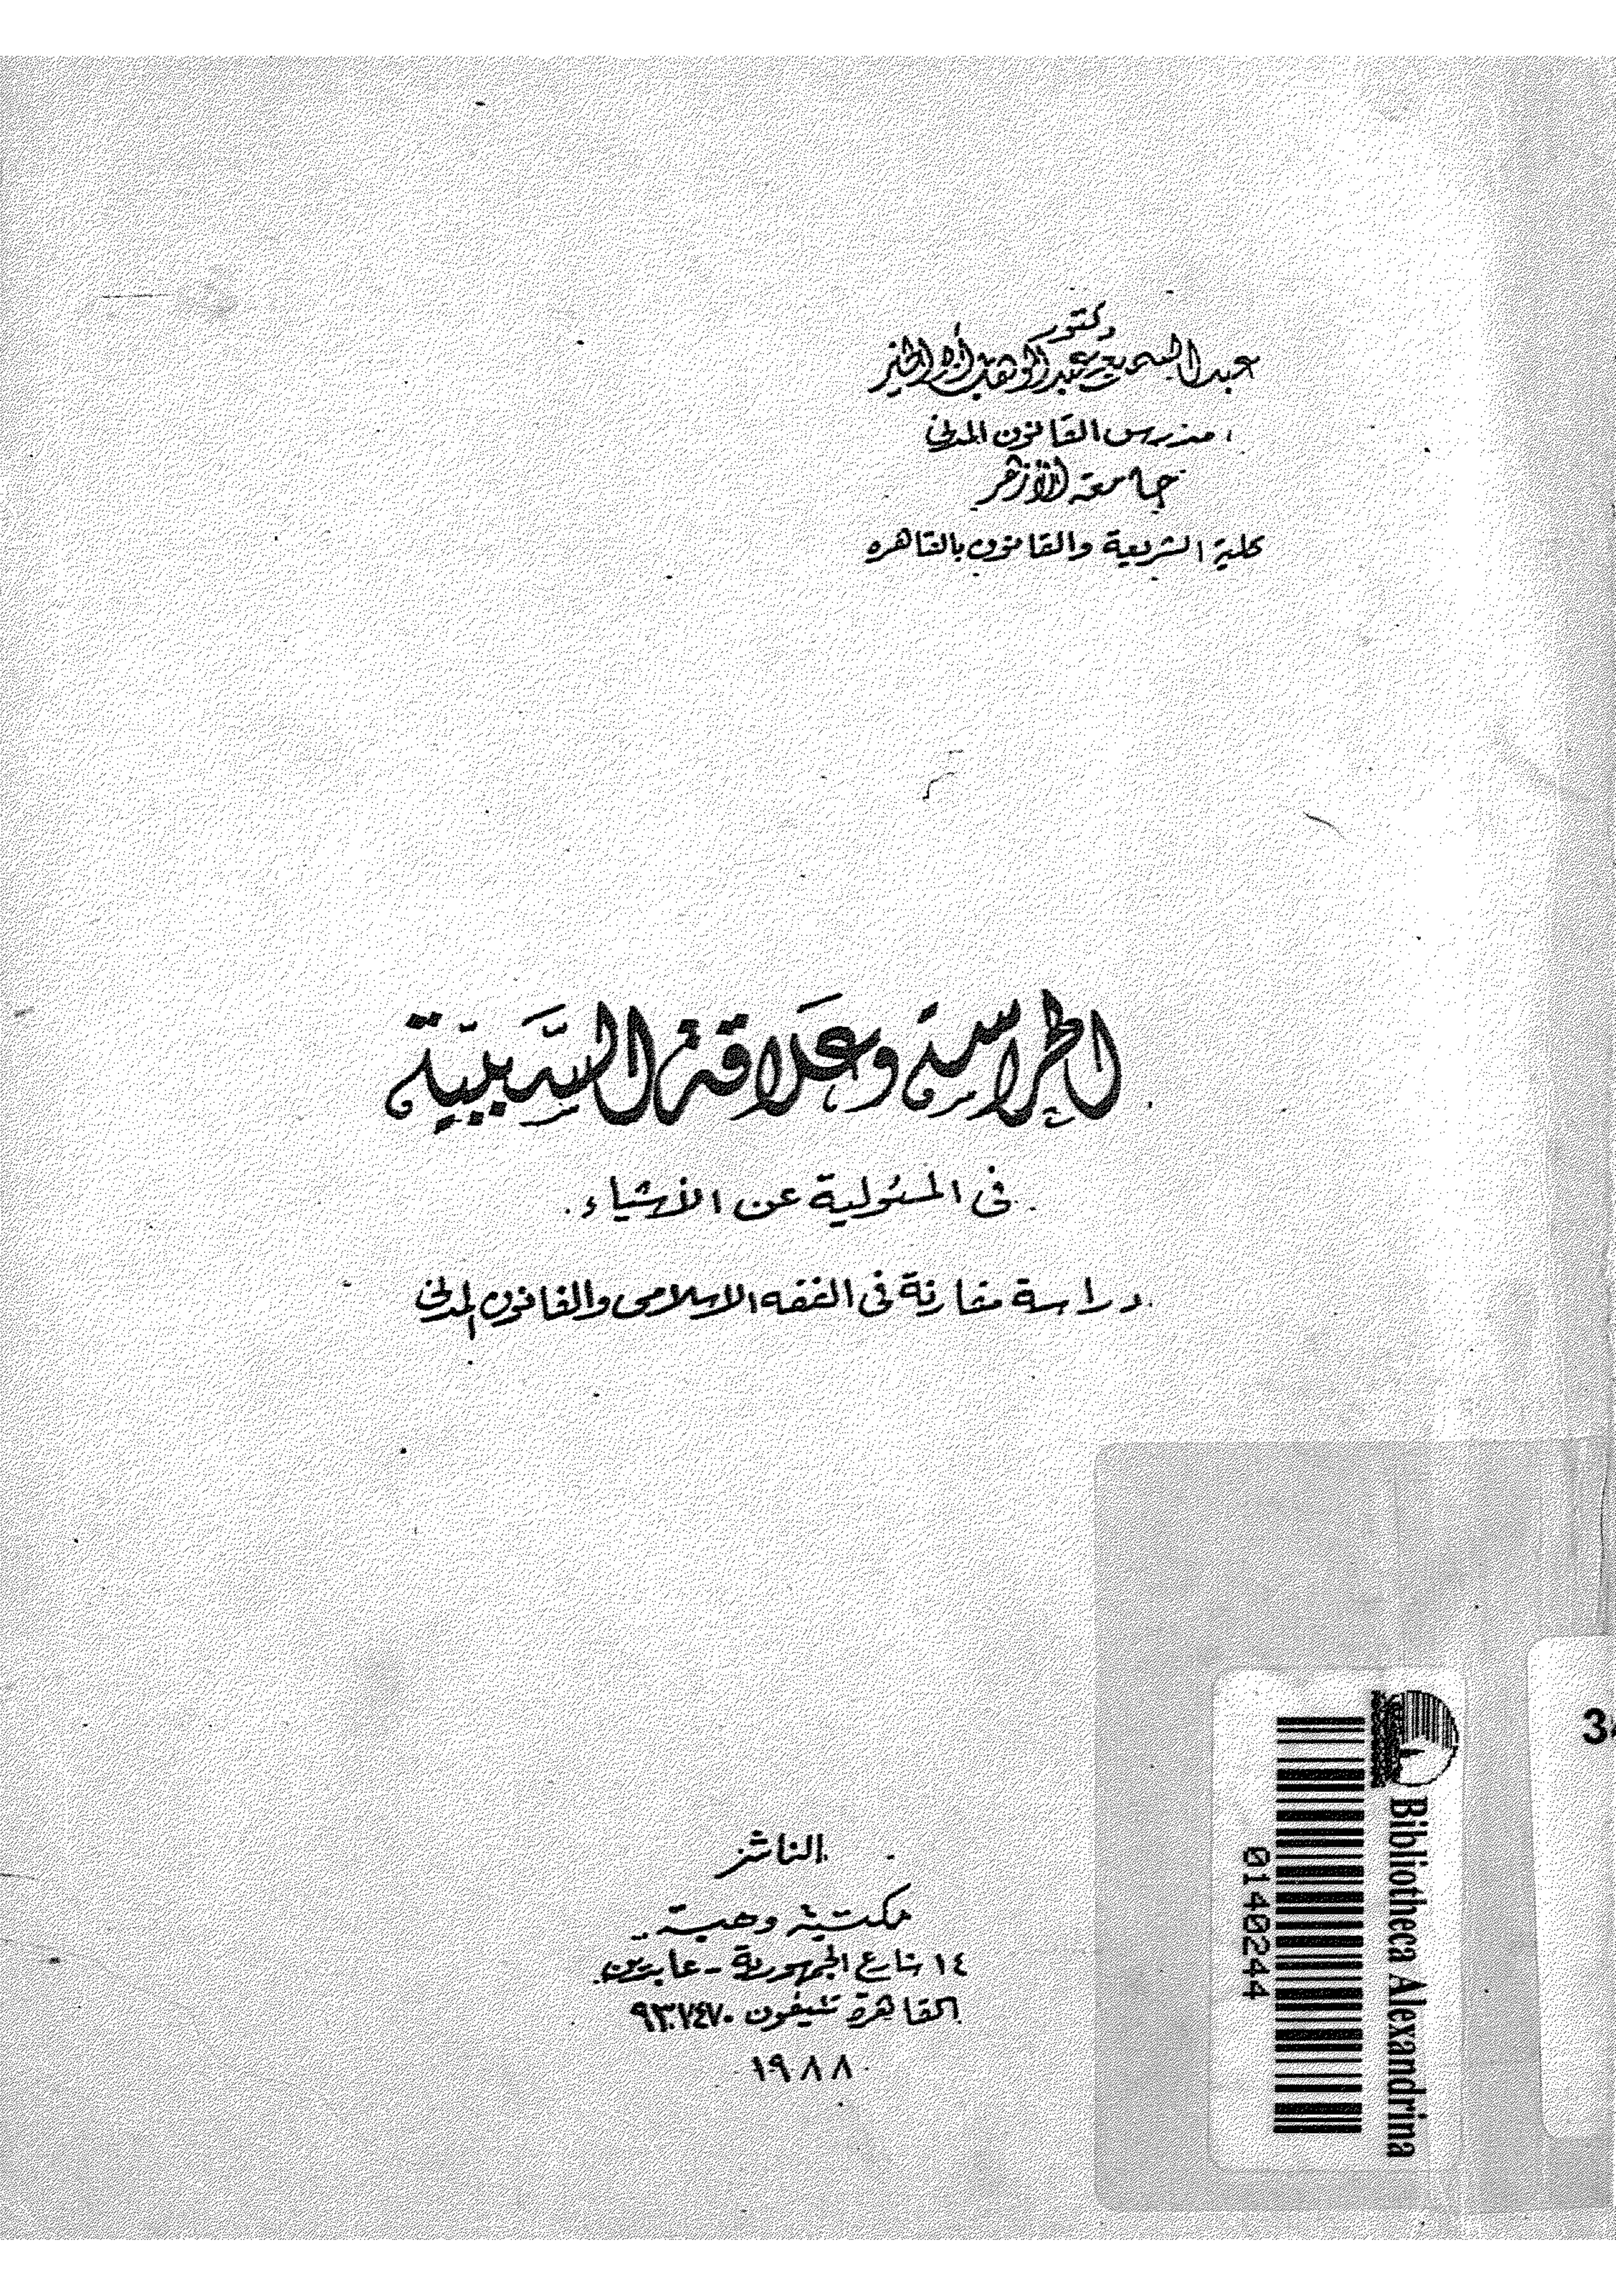 دكتور
عبد السميع عبد الوهاب أبو الخير
مدرس القانون المدنى
جامعة الأزهر
كلية الشريعة والقانون بالقاهرة
الحراسة وعلاقة السَّببيّة
فى المسئولية عن الأشياء
دراسة مقارنة فى الفقه الاسلامى والقانون المدنى
الناشر
مكتبة وهبة
١٤ شارع الجمهورية - عابدين
القاهرة تليفون ٩٣٧٤٧٠
١٩٨٨
Bibliotheca Alexandrina
0140244